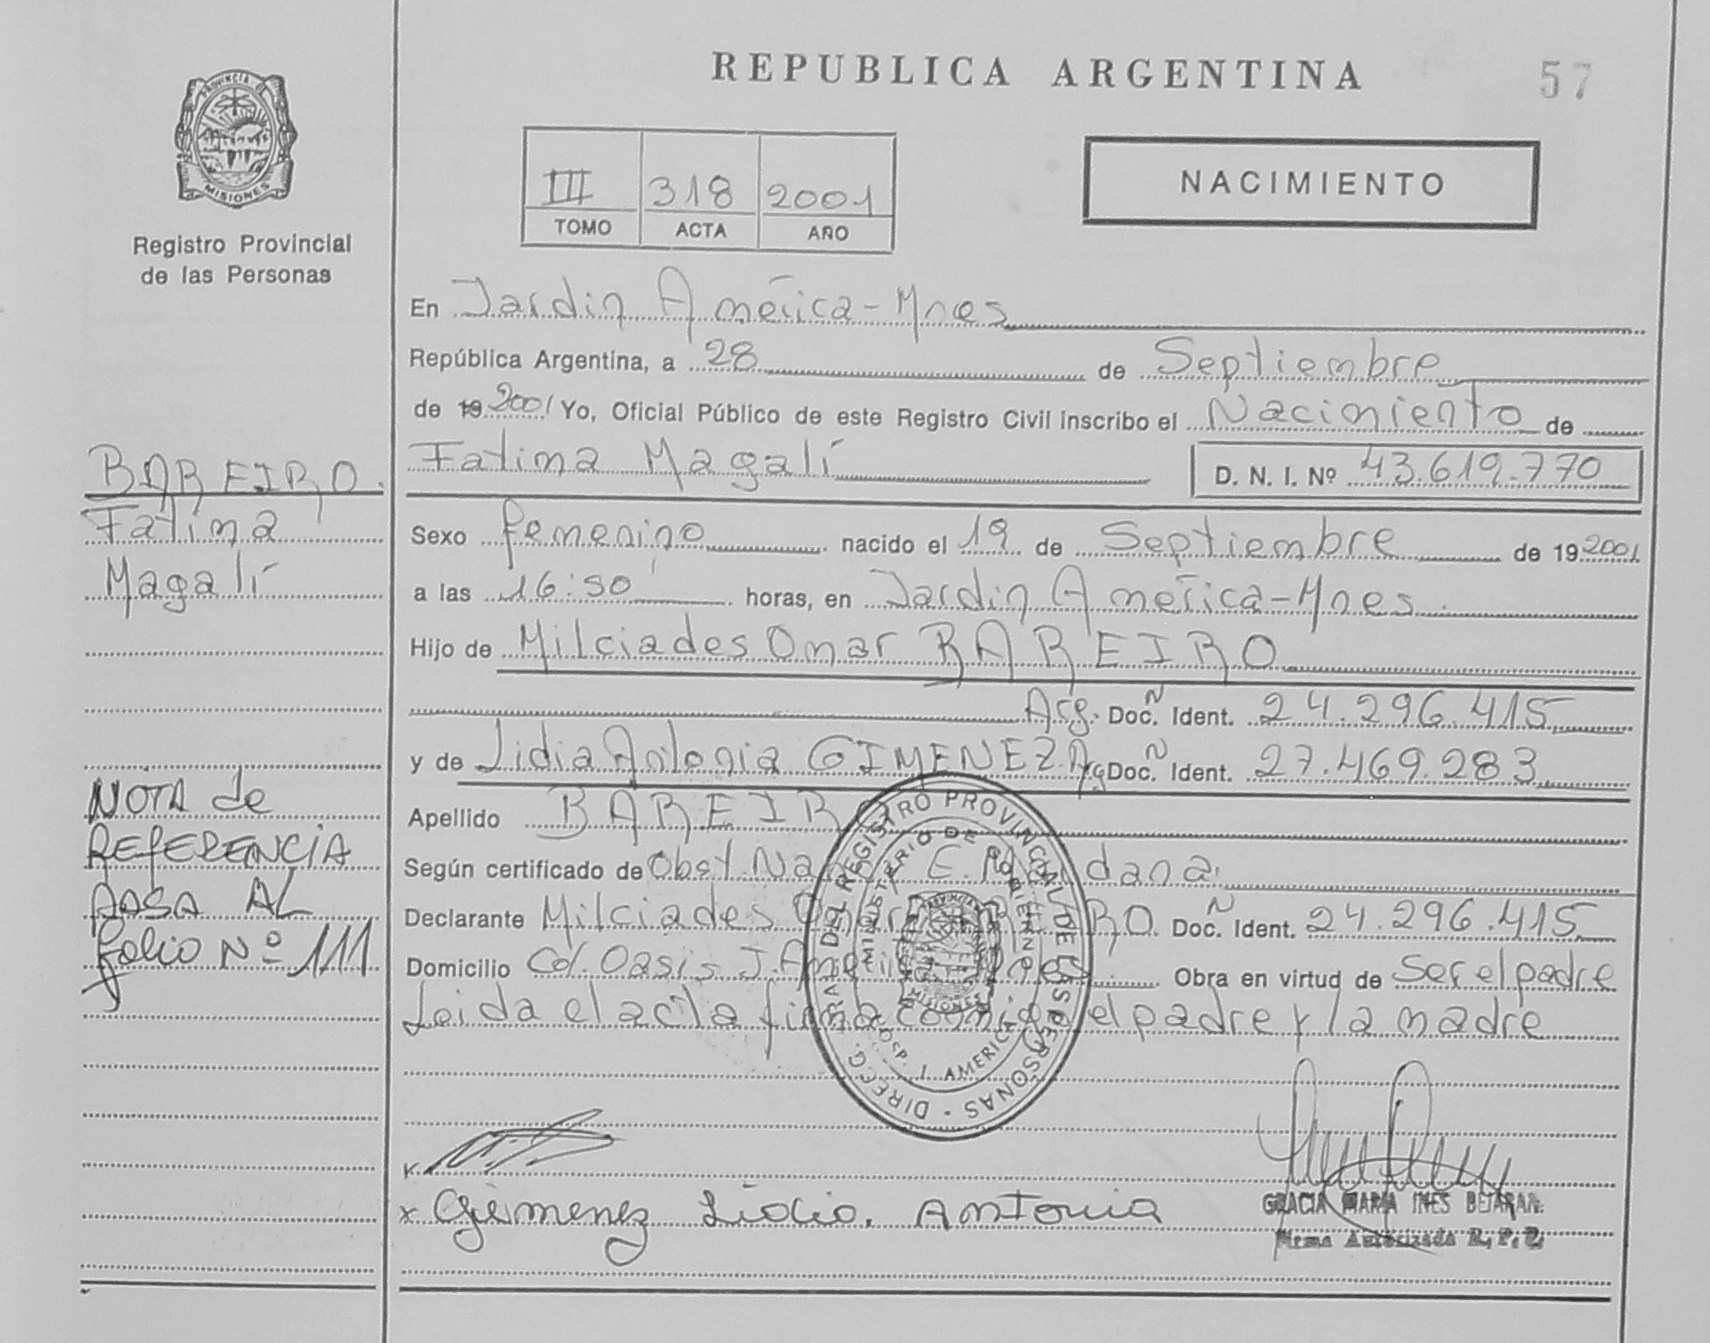 REPUBLICA ARGENTINA
57
PROVINCIA DE
MISIONES
Registro Provincial
de las Personas
III 318 2001
TOMO ACTA AÑO
NACIMIENTO
En Jardin América-Mnes
República Argentina, a 28 de Septiembre
de 19 2001 Yo, Oficial Público de este Registro Civil inscribo el Nacimiento de
Fatima Magalí D. N. I. Nº 43.619.770
BAREIRO
Fatima
Magalí
Sexo femenino nacido el 19 de Septiembre de 19 2001
a las 16:30 horas, en Jardin América-Mnes
Hijo de Milciades Omar BAREIRO
Arg. Doc. N Ident. 24.296.415
y de Lidia Antonia GIMENEZ Arg Doc. N Ident. 27.469.283
Apellido BAREIRO
Según certificado de Obst. E. dana
Declarante Milciades Omar BAREIRO Doc. N Ident. 24.296.415
Domicilio Col. Oasis J. América Mnes Obra en virtud de Ser el padre
Leida el acta firma conmigo el padre y la madre
NOTA de
REFERENCIA
PASA AL
folio Nº 111
DIRECC. GRAL DEL REGISTRO PROVINCIAL DE LAS PERSONAS
MINISTERIO DE GOBIERNO
HOSP. J. AMERICA
PROVINCIA
MISIONES
x
x Gimenez Lidia Antonia
GRACIA MARIA INES BEJARAN
Firma Autorizada R. P. P.